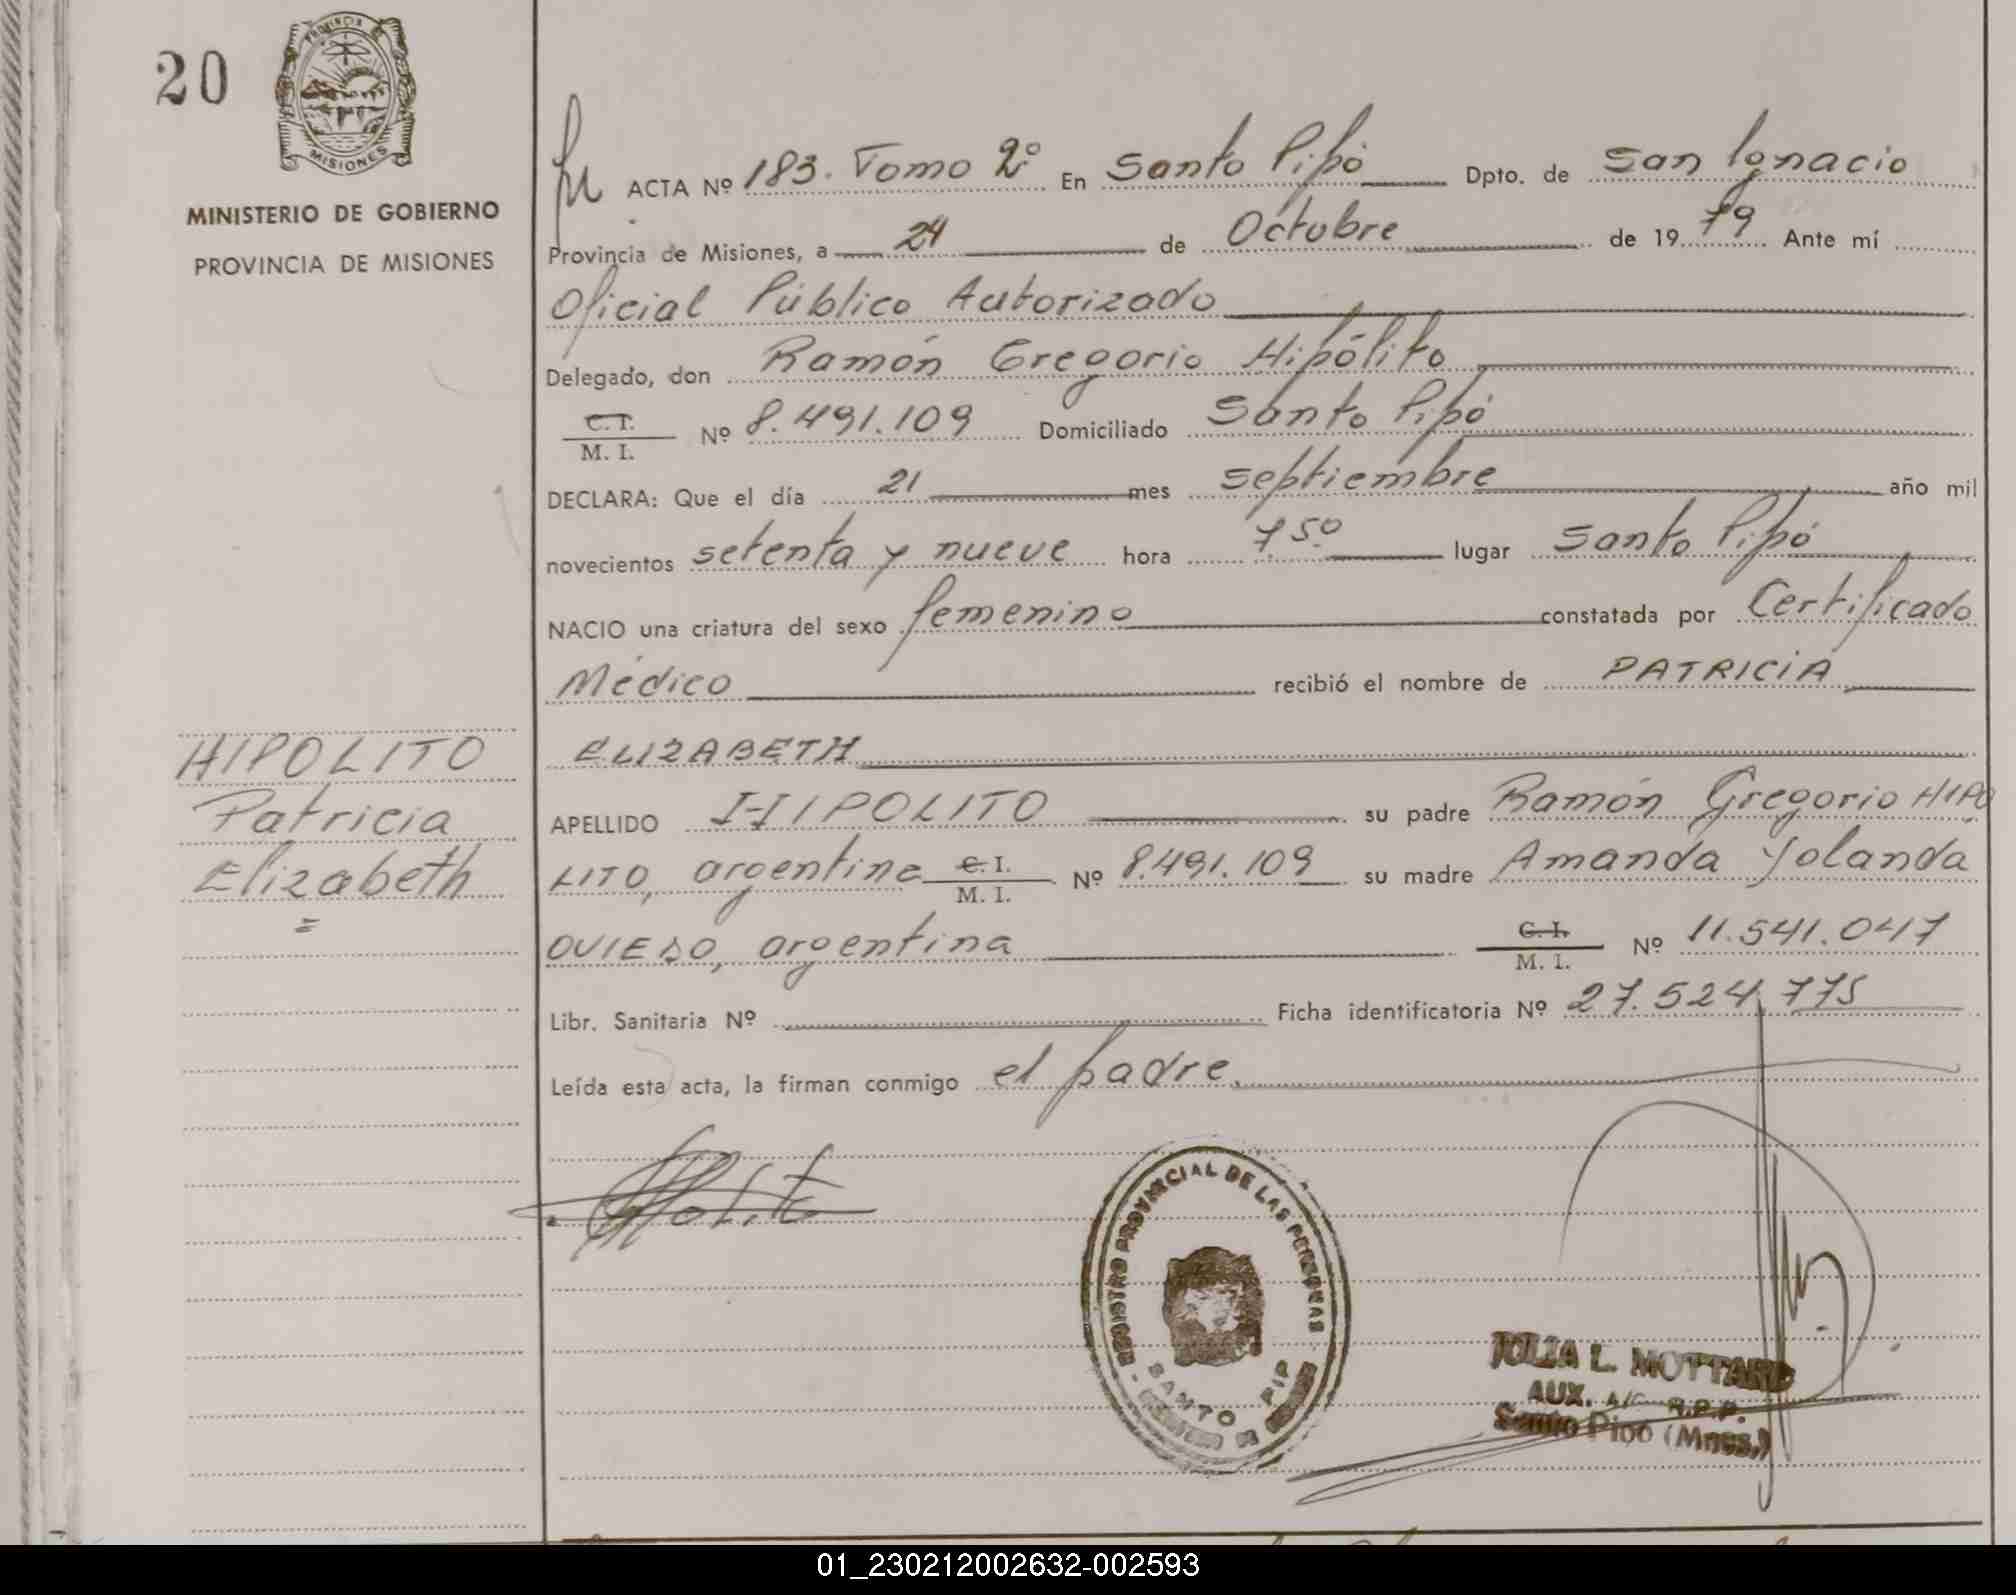 20
PROVINCIA
MISIONES
MINISTERIO DE GOBIERNO
PROVINCIA DE MISIONES
HIPOLITO
Patricia
Elizabeth
=
ACTA Nº 183. Tomo 2º En Santo Pipó Dpto. de San Ignacio
Provincia de Misiones, a 24 de Octubre de 1979 Ante mí
Oficial Público Autorizado
Delegado, don Ramón Gregorio Hipólito
C. I. M. I. Nº 8.491.109 Domiciliado Santo Pipó
DECLARA: Que el día 21 mes septiembre año mil
novecientos setenta y nueve hora 7,50 lugar Santo Pipó
NACIO una criatura del sexo femenino constatada por Certificado
Médico recibió el nombre de PATRICIA
ELIZABETH
APELLIDO HIPOLITO su padre Ramón Gregorio HIPO
LITO, argentino C. I. M. I. Nº 8.491.109 su madre Amanda Yolanda
OVIEDO, argentina C. I. M. I. Nº 11.541.047
Libr. Sanitaria Nº Ficha identificatoria Nº 27.524.775
Leída esta acta, la firman conmigo el padre
REGISTRO PROVINCIAL DE LAS PERSONAS
SANTO PIP
L. MOTTARD
AUX. A/C R.P.P.
Santo Pipo (Mnes.)
01_230212002632-002593